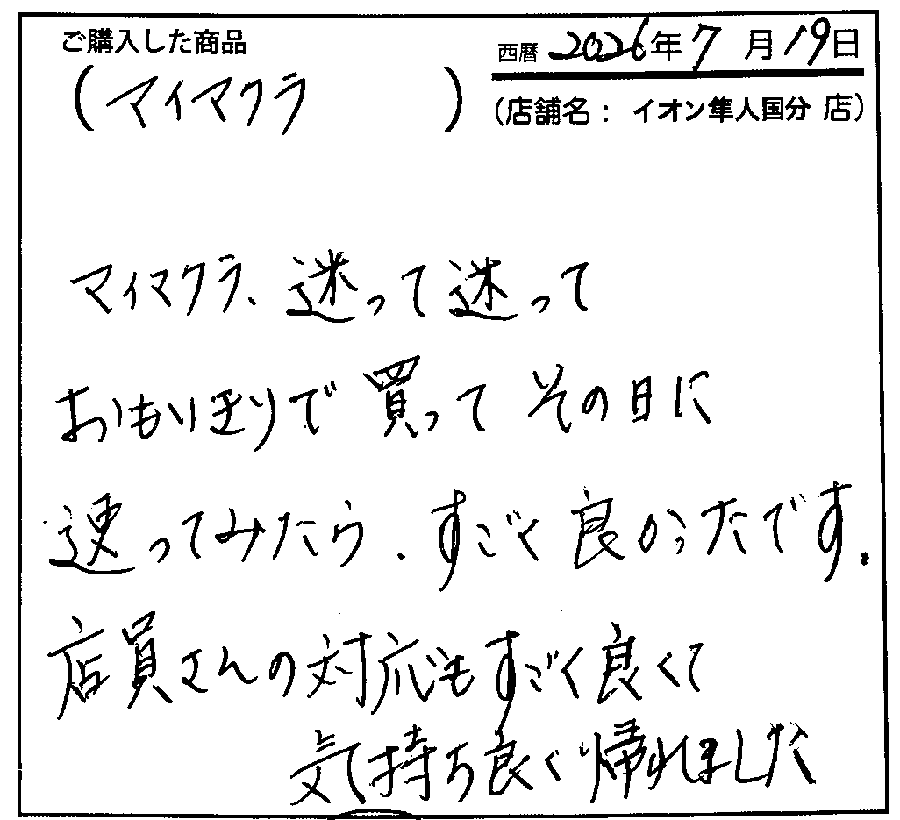 ご購入した商品
西暦 2026年 7月19日
(マイマクラ)
(店舗名：イオン隼人国分 店)
マイマクラ、迷って迷って
おもいきりで買ってその日に
速ってみたら、すごく良かったです。
店員さんの対応もすごく良くて
気持ち良く帰れました